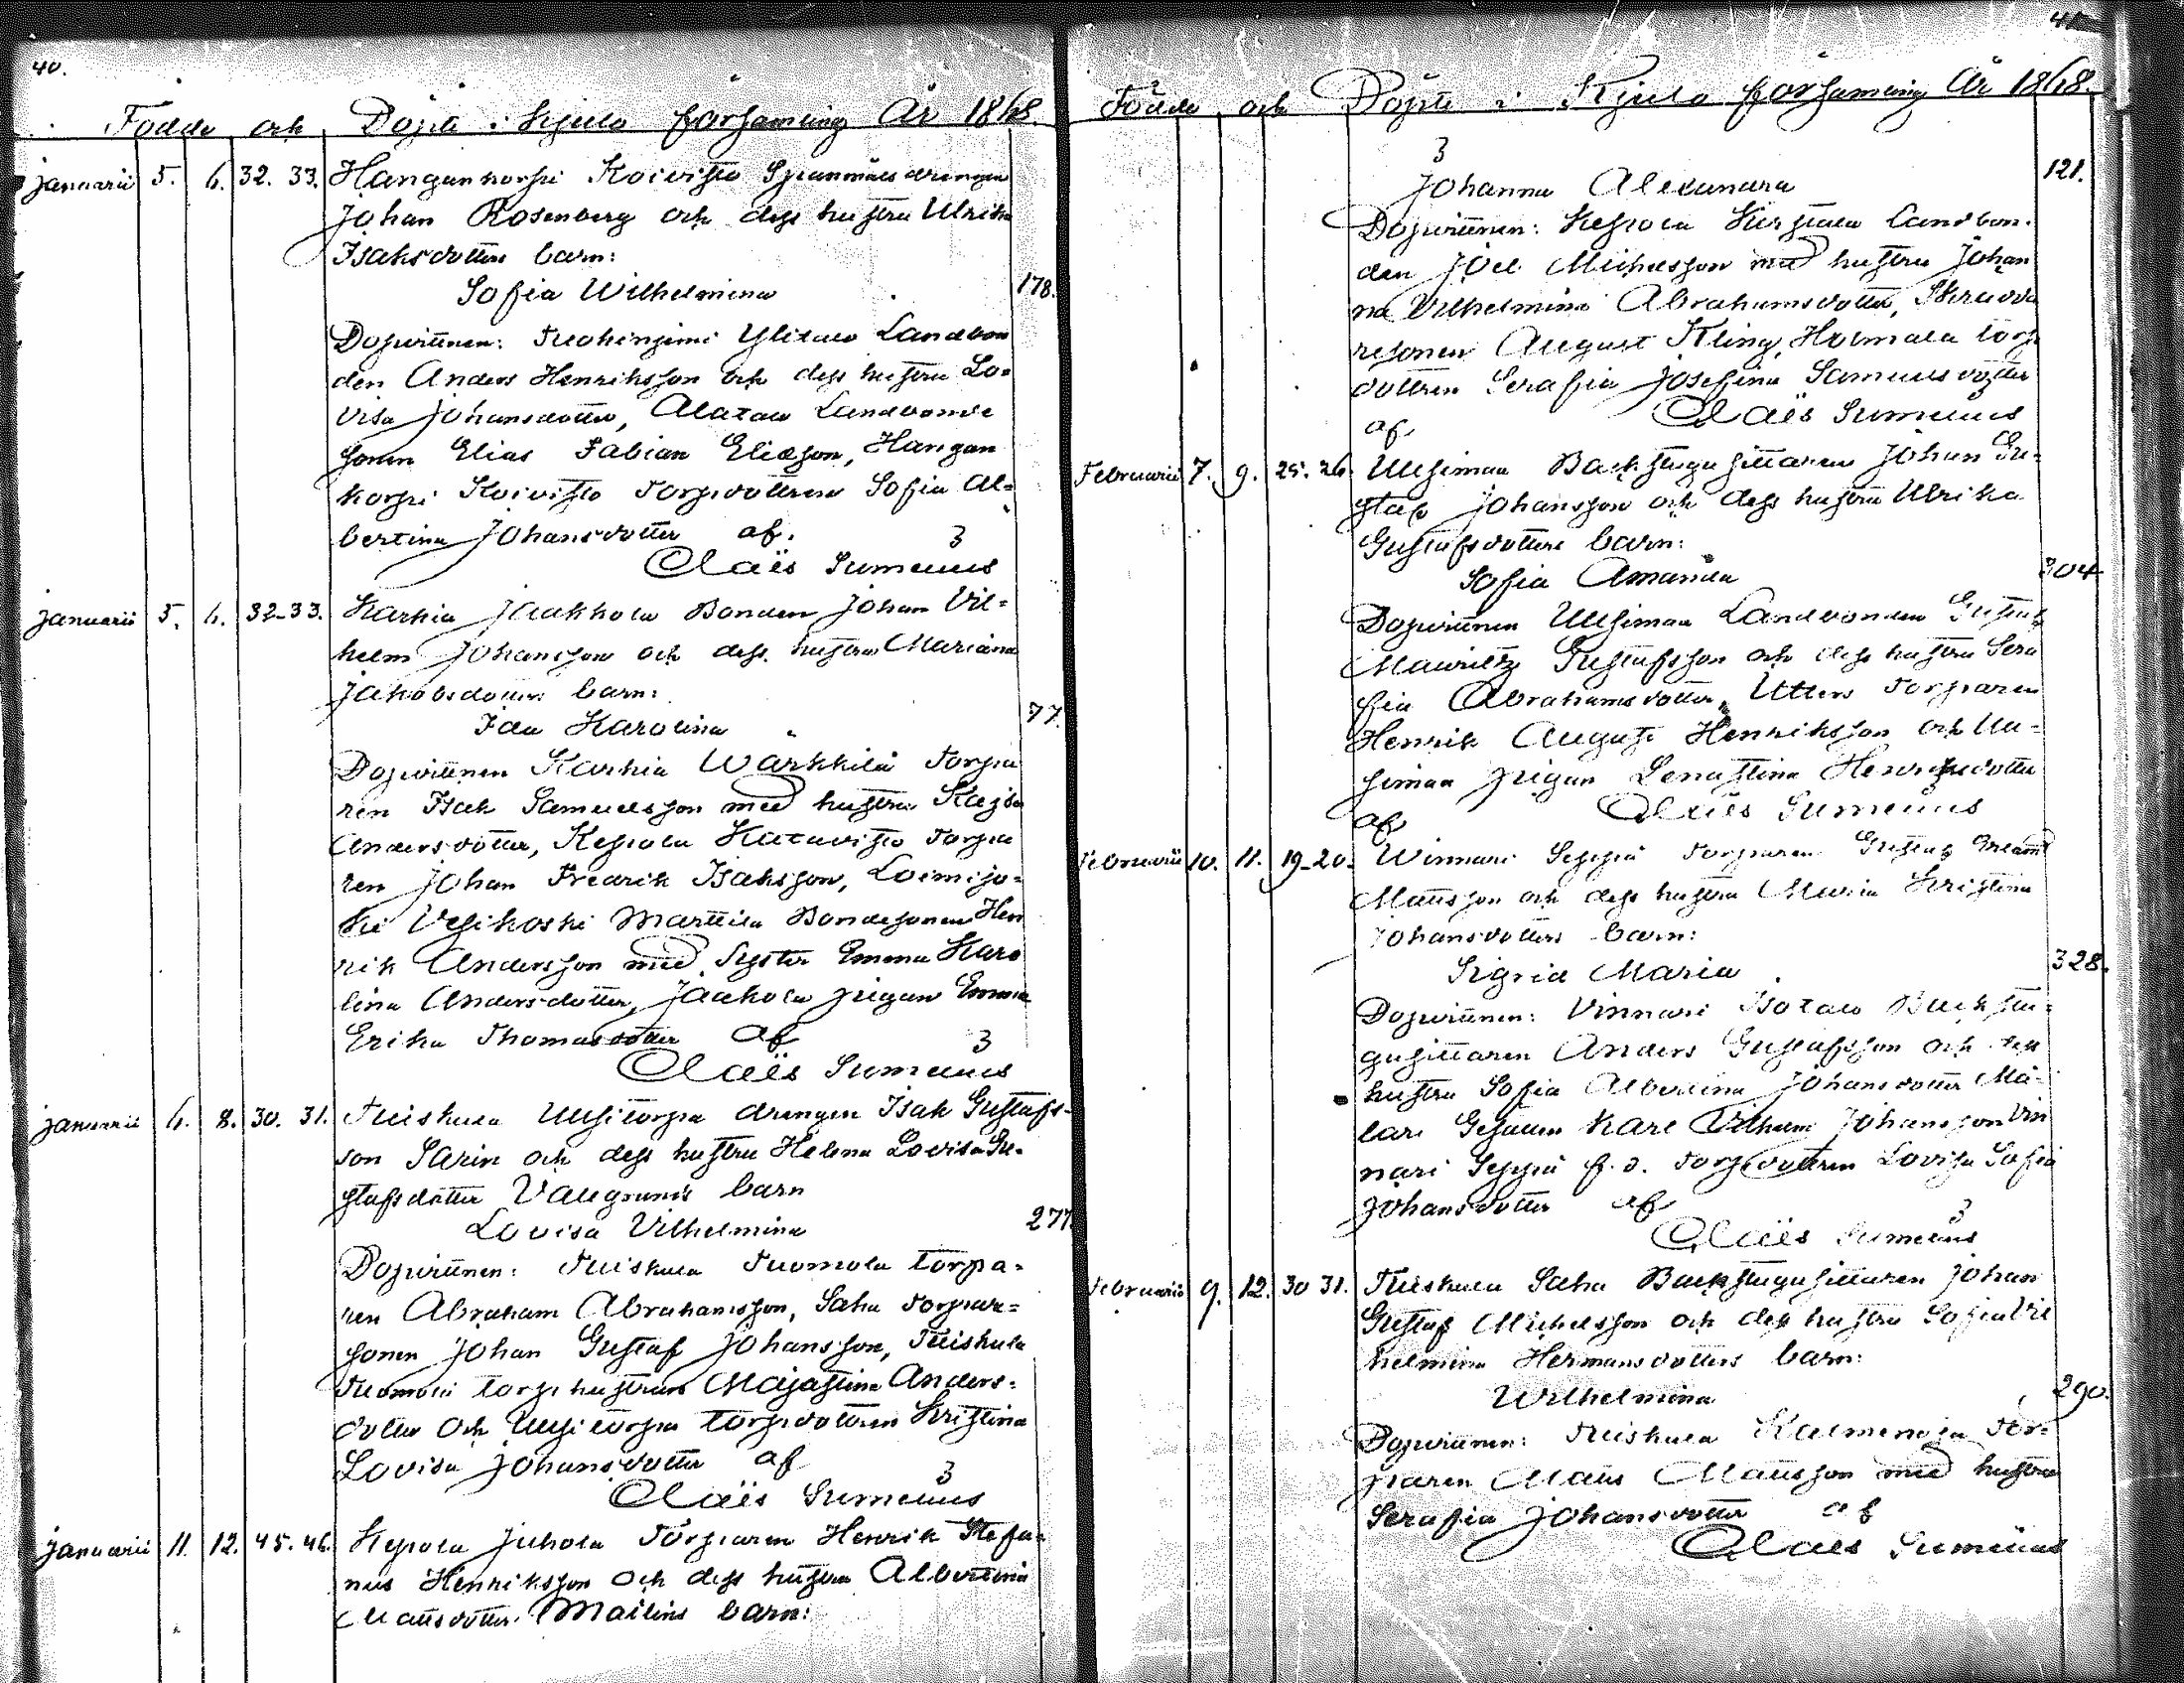 40.
Födde och Döpte i Kjulo församling År 1868.
Januarii 5. 6. 32. 33. Hangankorpi Koivisto Spanmålsdrängen
Johan Rosenberg och dess hustru Ulrika
Isaksdotters barn:
Sofia Wilhelmina 178.
Dopvittnen: Ylitalo Landbon
den Anders Henriksson och dess hustru Lo=
visa Johansdotter, Alatalo Landbonde
sonen Elias Fabian Eliasson, Hangan
korpi Koivisto Torpdottren Sofia Al=
bertina Johansdotter af. 3
Claës Sumelius
Januarii 5. 6. 32-33. Karhia Jaakkola Bonden Johan Vil=
helm Johansson och dess hustru Mariana
Jakobsdotters barn:
Ida Karolina 77.
Dopvittnen Karhia Warkkila Torpa
ren Isak Samuelsson med hustru Kajsa
Andersdotter, Kepola Katavisto Torpa
ren Johan Fredrik Isaksson, Loimijo=
ki Vesikoski Marttila Bondesonen Hen
rik Andersson med Syster Emma Karo
lina Andersdotter, Jaakola pigan Emma
Erika Thomasdotter af 3
Claës Sumelius
Januarii 6. 8. 30. 31. Tuiskula Uusitorpa drengen Isak Gustafs-
son Sarin och dess hustru Helena Lovisa Gu=
stafsdotter Valegrunds barn
Lovisa Vilhelmina 277
Dopvittnen: Tuiskula Tuomola torpa=
ren Abraham Abrahamsson, Saha Torpare=
sonen Johan Gustaf Johansson, Tuiskula
Tuomola torp. hustrun Majastina Anders=
dotter och Uusitorpa torpdottren Kristina
Lovisa Johansdotter af 3
Claës Sumelius
Januarii 11. 12. 45. 46. Kepola Juhola Torparen Henrik Stefa=
nus Henriksson och dess hustru Albertina
Matsdotter Malins barn:
41
Födde och Döpte i Kjulo församling År 1868.
3
Johanna Alexandra 121.
Dopvittnen: Kepola Landbon=
den Joel Michelsson med hustru Johan
na Vilhelmina Abrahamsdotter, Skredda
resonen August Kling, Holmala torp
dottren Serafia Josefina Samuelsdotter
af Claës Sumelius
Februarii 7. 9. 25. 26. Uusimaa Backstugusittaren Johan Gu=
staf Johansson och dess hustru Ulrika
Gustafsdotters barn:
Sofia Amanda 304
Dopvittnen Uusimaa Landbonden Gustaf
Mauritz Gustafsson och dess hustru Sera
fia Abrahamsdotter, Utters Torparen
Henrik August Henriksson och Uu=
simaa pigan Lenastina Henriksdotter
af Claës Sumelius
Februarii 10. 11. 19-20. Winnari Seppä Torparen Gustaf
Matsson och dess hustru Maria Kristina
Johansdotters barn:
Sigrid Maria 328.
Dopvittnen: Vinnari Isotalo Backstu=
gusittaren Anders Gustafsson och dess
hustru Sofia Albertina Johansdotter Må=
lare Gesällen Karl Vilhelm Johansson Vin
nari Seppä f.d. Torpdottren Lovisa Sofia
Johansdotter af 3
Claës Sumelius
Februarii 9. 12. 30 31. Tuiskula Saha Backstugusittaren Johan
Gustaf Michelsson och dess hustru Sofia Vil
helmina Hermansdotters barn:
Wilhelmina 290.
Dopvittnen: Tuiskula Kalmenoja Tor=
paren Mats Matsson med hustru
Serafia Johansdotter af
Claës Sumelius